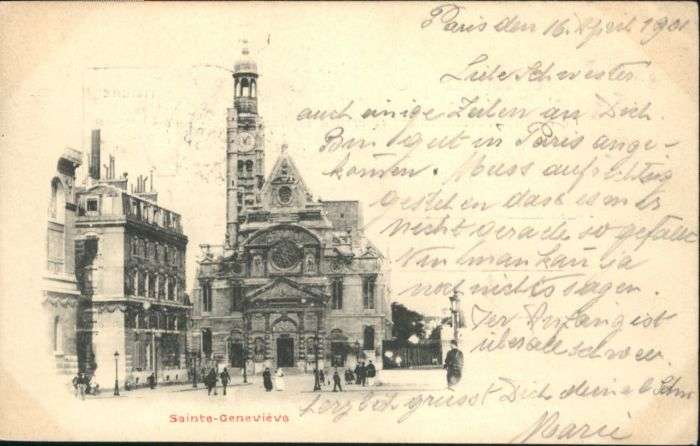 Paris den 16. April 1901
Liebe Schwester
auch einige Zeilen an Dich.
Bin gut in Paris ange-
kommen. Muss aufrichtig
gestehen dass es mir
nicht gerade so gefällt
Nun man kann ja
noch nichts sagen.
Der Anfang ist
überall schwer.
herzlich grüsst Dich deine l. Schw
Marie
Sainte-Geneviève